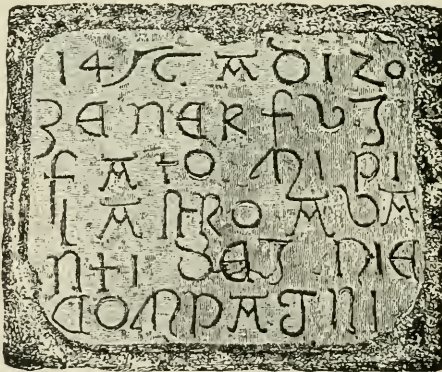 A DI 20
ZENER FUJ
FATO MI PI
LANTRO AVA
NTI SEJ MIE
COMPAGNI